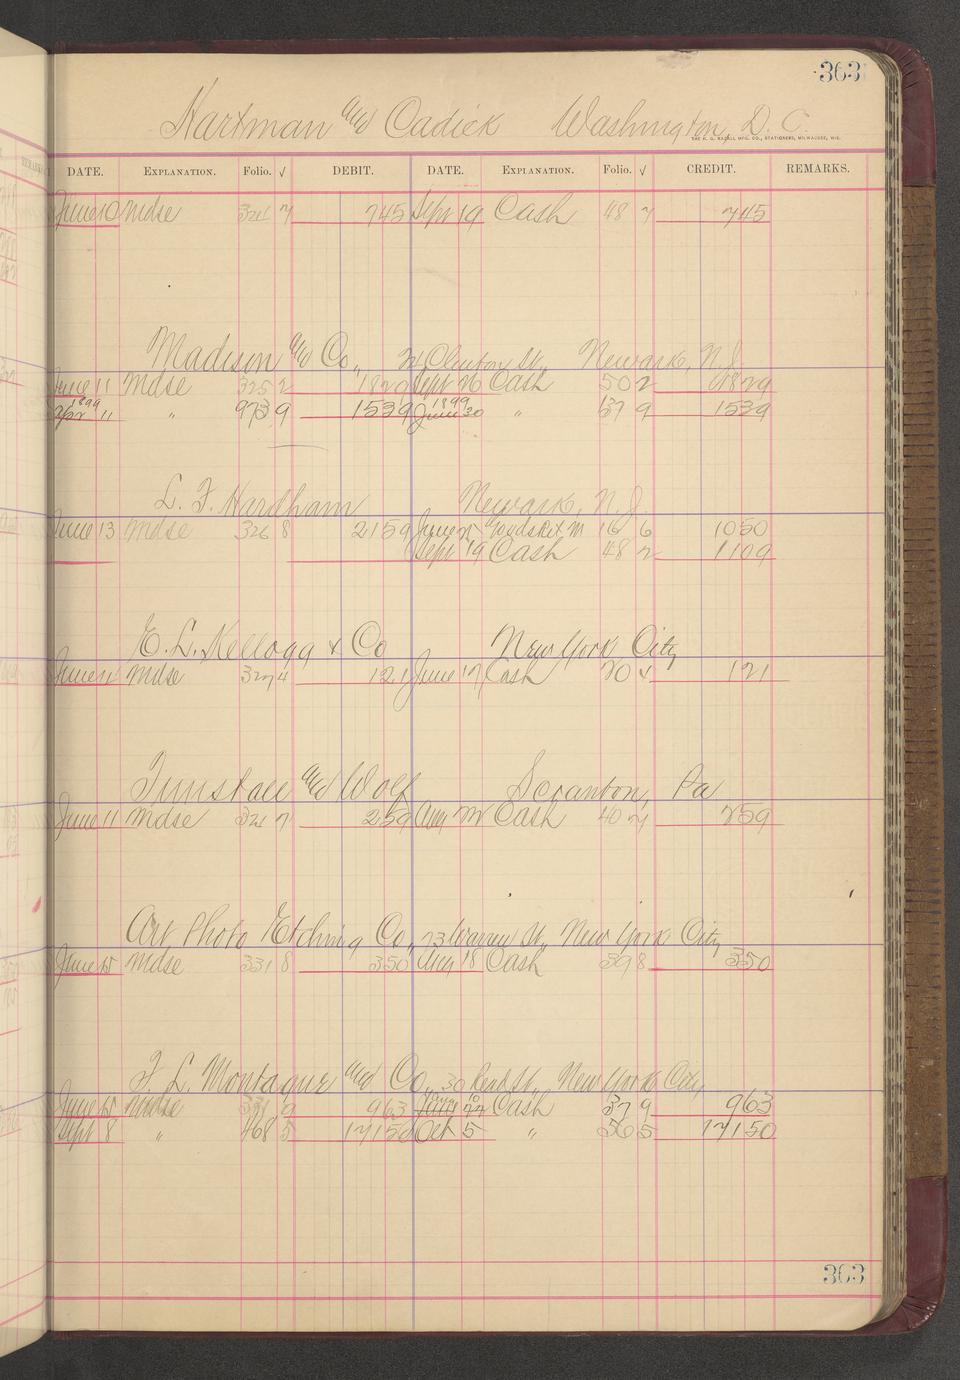 363
Hartman and Cadick Washington, D. C.
THE H. G. RAZALL MFG. CO., STATIONERS, MILWAUKEE, WIS.
DATE. EXPLANATION. Folio. √ DEBIT. DATE. EXPLANATION. Folio. √ CREDIT. REMARKS.
June 10 Mdse 324 7 745 Sept 19 Cash 48 7 745
Madison and Co., Clinton St., Newark, N. J.
June 11 Mdse 325 2 1829 Sept 26 Cash 50 2 1829
1899 1899
Apr 11 " 973 9 1539 June 30 " 137 9 1539
L. F. Hardham Newark, N. J.
June 13 Mdse 326 8 2159 June Goods Ret. 16 6 1050
Sept 19 Cash 48 2 1109
E. L. Kellogg & Co New York City
June Mdse 327 4 121 June 17 Cash 20 4 121
Tunstall and Wolf Scranton, Pa
June 11 Mdse 321 7 259 Aug Cash 40 7 259
Art Photo Etching Co., 73 Warren St., New York City
June 15 Mdse 331 8 350 Aug 18 Cash 39 8 350
F. L. Montague and Co., 30 Read St., New York City
June 15 Mdse 331 9 963 Cash 37 9 963
Sept 8 " 468 5 17150 Oct 5 " 56 5 17150
363